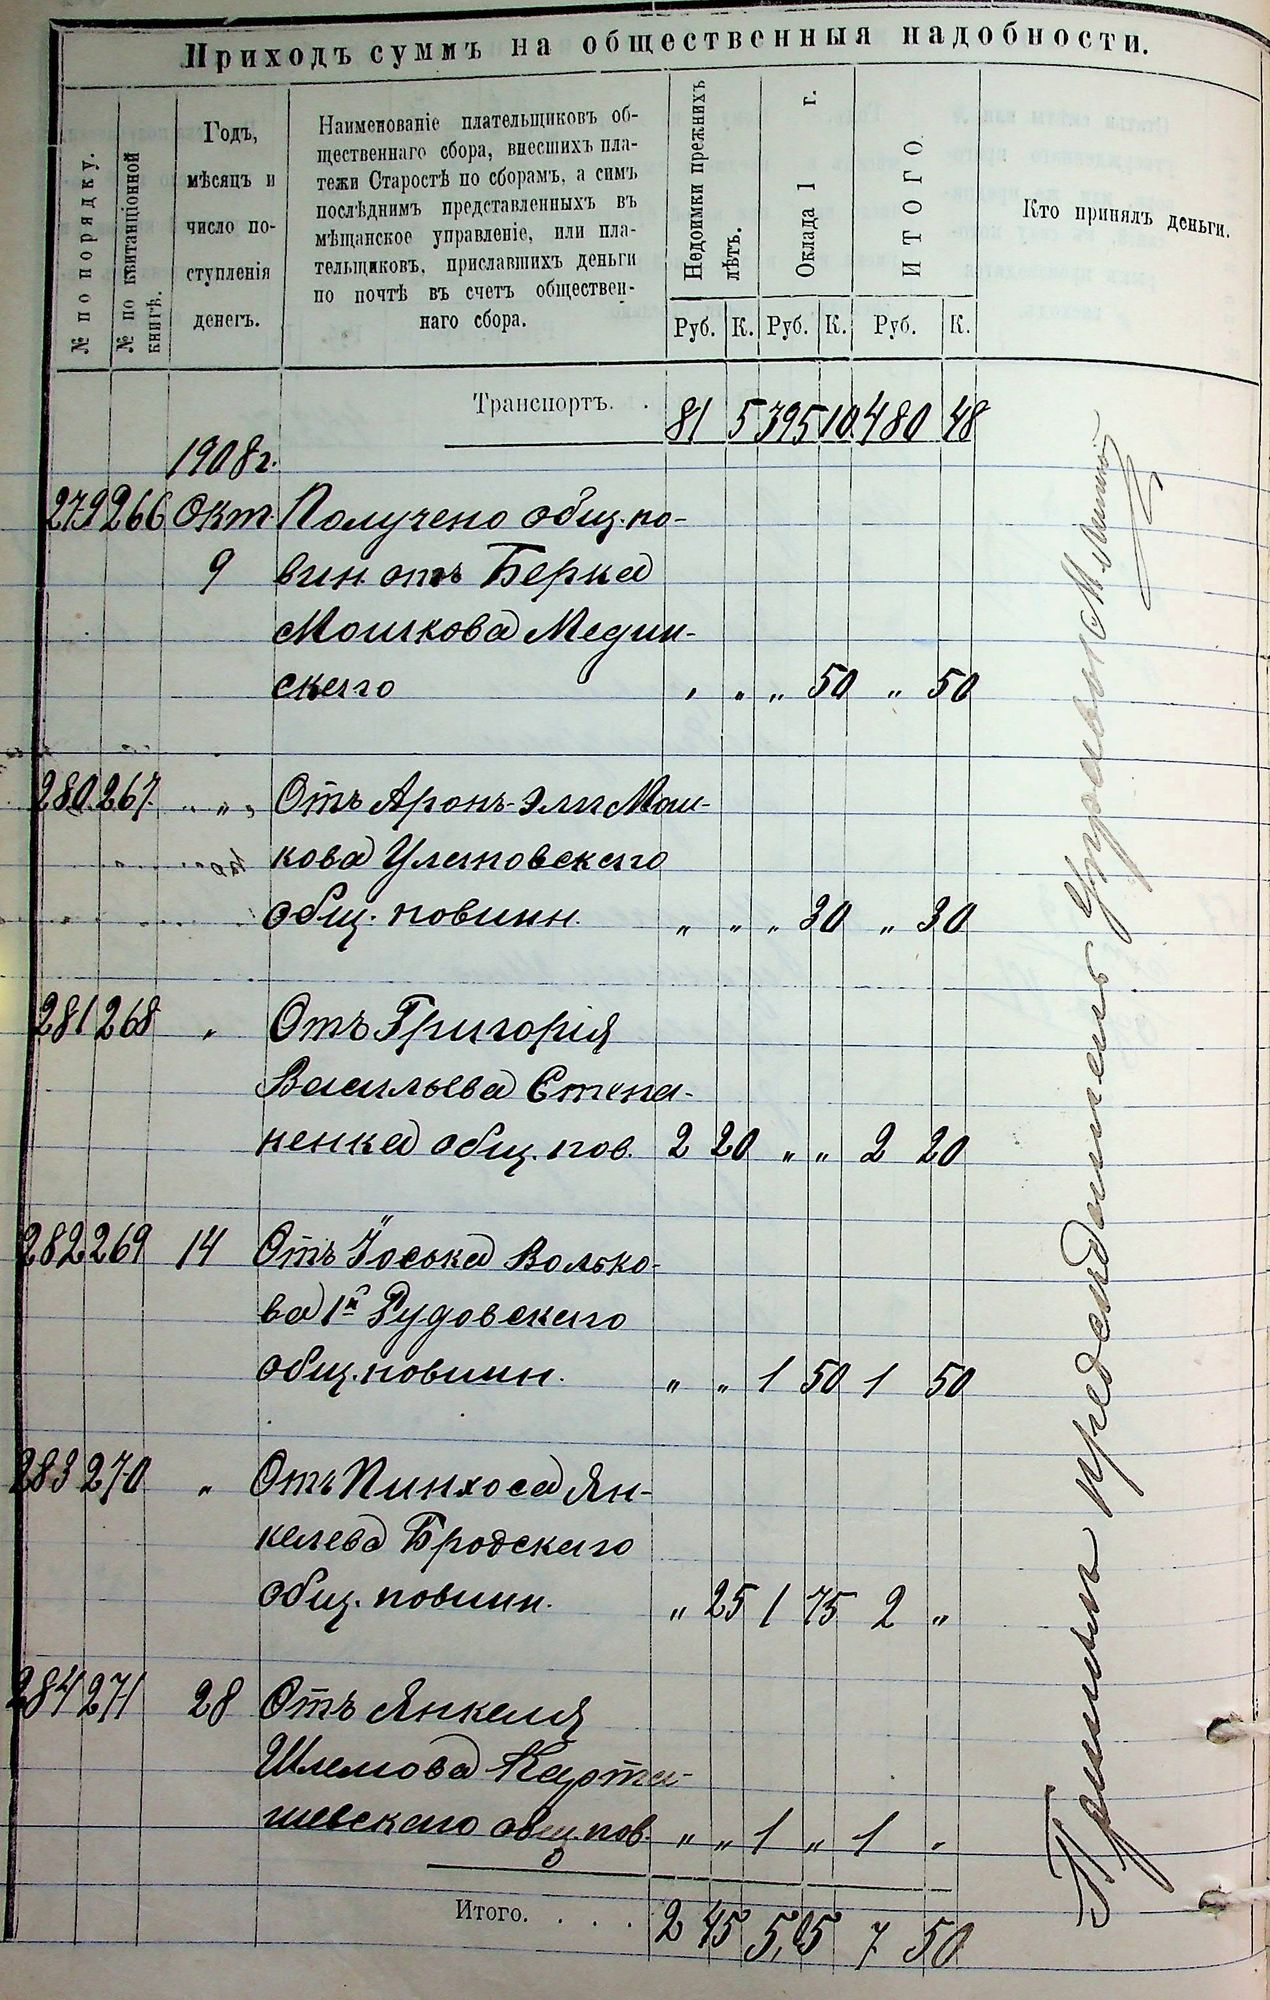 Приходъ суммъ на общественныя надобности.
№ по порядку.
№ по квитанціонной книгѣ.
Годъ,
мѣсяцъ и
число по-
ступленія
денегъ.
Наименованіе плательщиковъ об-
щественнаго сбора, внесшихъ пла-
тежи Старостѣ по сборамъ, а симъ
послѣднимъ представленныхъ въ
мѣщанское управленіе, или пла-
тельщиковъ, приславшихъ деньги
по почтѣ въ счетъ обществен-
наго сбора.
Недоимки прежнихъ лѣтъ.
Оклада 1 г.
ИТОГО
Кто принялъ деньги.
Руб. К. Руб. К. Руб. К.
Транспортъ. . 81 5 395 10 480 48
1908 г.
279 266 Окт. Получено общ. по-
9 вин. отъ Берка
Мошкова Медин-
скаго , „ „ 50 „ 50
280 267 „ „ Отъ Аронъ-Эли Мош-
кова Улановскаго
общ. повинн. „ „ „ 30 „ 30
281 268 „ Отъ Григорія
Васильева Степа-
ненка общ. пов. 2 20 „ „ 2 20
282 269 14 Отъ Іоська Волько-
ва 1й Рудовскаго
общ. повинн. „ „ 1 50 1 50
283 270 „ Отъ Пинхоса Ян-
келева Бродскаго
общ. повинн. „ 25 1 75 2 „
284 271 28 Отъ Янкеля
Шлемова Карта-
шевскаго общ. пов. „ „ 1 „ 1 „
Итого. . . . 2 45 5,05 7 50
Принялъ председатель Управы